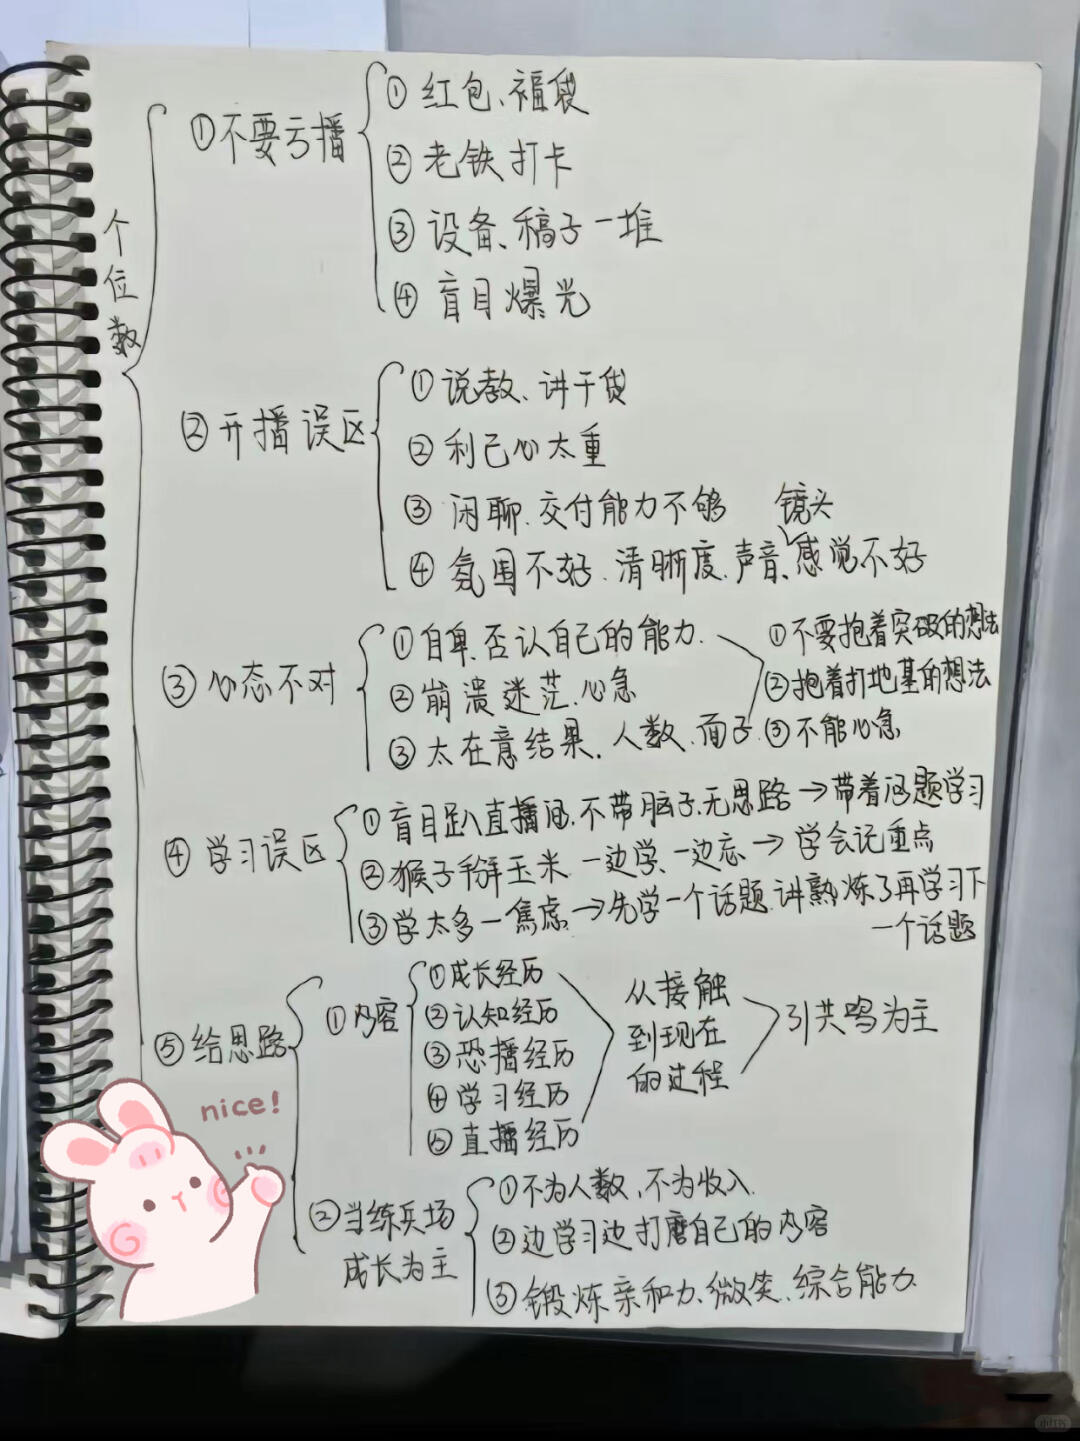 个位数
①不要亏播
①红包、福袋
②老铁打卡
③设备、稿子一堆
④盲目爆光
②开播误区
①说教、讲干货
②利己心太重
③闲聊、交付能力不够
镜头
④氛围不好、清晰度、声音、感觉不好
③心态不对
①自卑、否认自己的能力.
②崩溃迷茫、心急
③太在意结果、人数、面子
①不要抱着突破的想法
②抱着打地基的想法
③不能心急
④学习误区
①盲目趴直播间、不带脑子、无思路→带着问题学习
②猴子掰玉米 一边学、一边忘→学会记重点
③学太多一焦虑→先学一个话题、讲熟炼了再学习下
一个话题
⑤给思路
①内容
①成长经历
②认知经历
③恐播经历
④学习经历
⑤直播经历
从接触
到现在
的过程
引共鸣为主
②当练兵场
成长为主
①不为人数、不为收入.
②边学习边打磨自己的内容
③锻炼亲和力、微笑、综合能力
nice!
小红书